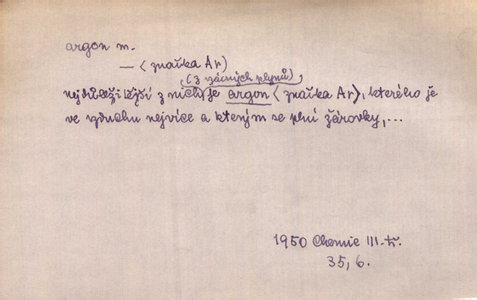 argon m.
— < značka Ar)
(z vzácných plynů),
nejdůležitější z nich je argon < značka Ar), kterého je
ve vzduchu nejvíce a kterým se plní žárovky,...
1950 Chemie III. tř.
35, 6.